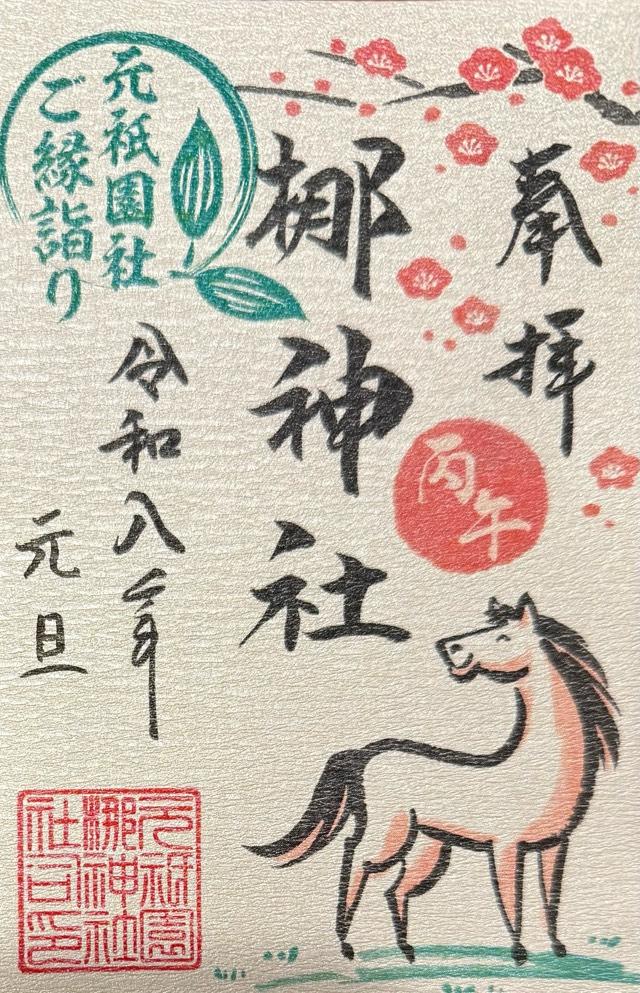 奉拝
丙午
梛神社
元祇園社
ご縁詣り
令和八年
元旦
元祇園
梛神社